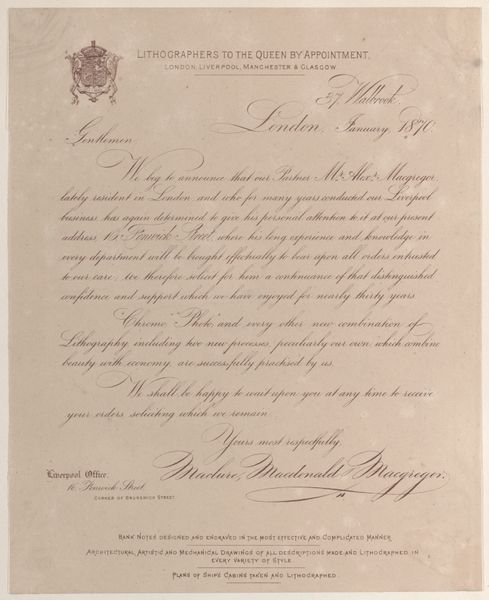 LITHOGRAPHERS TO THE QUEEN BY APPOINTMENT,
LONDON, LIVERPOOL, MANCHESTER & GLASGOW.
37, Walbrook.
London, January, 1870.
Gentlemen,
We beg to announce that our Partner Mr. Alexr. Macgregor,
lately resident in London and who for many years conducted our Liverpool
business, has again determined to give his personal attention to it at our present
address, Fenwick Street, where his long experience and knowledge in
every department will be brought effectually to bear upon all orders entrusted
to our care, we therefore solicit for him a continuance of that distinguished
confidence and support which we have enjoyed for nearly thirty years.
"Chromo" "Photo" and every other new combination of
Lithography including two new processes, peculiarly our own, which combine
beauty with economy, are successfully practised by us.
We shall be happy to wait upon you at any time to receive
your orders soliciting which we remain
Yours most respectfully,
Maclure, Macdonald & Macgregor.
Liverpool Office.
16, Fenwick Street,
CORNER OF BRUNSWICK STREET.
BANK NOTES DESIGNED AND ENGRAVED IN THE MOST EFFECTIVE AND COMPLICATED MANNER.
ARCHITECTURAL, ARTISTIC AND MECHANICAL DRAWINGS OF ALL DESCRIPTIONS MADE AND LITHOGRAPHED IN
EVERY VARIETY OF STYLE.
PLANS OF SHIPS CABINS TAKEN AND LITHOGRAPHED.